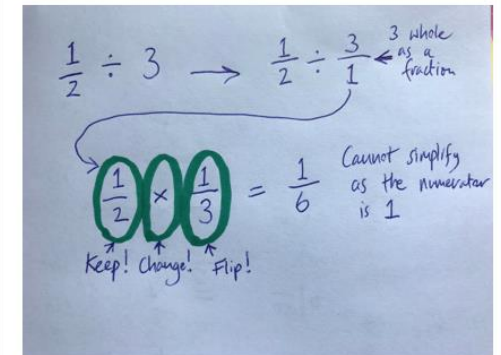 1/2 ÷ 3 → 1/2 ÷ 3/1 ← 3 whole
as a
fraction
1/2 × 1/3 = 1/6 Cannot simplify
as the numerator
is 1
Keep! Change! Flip!